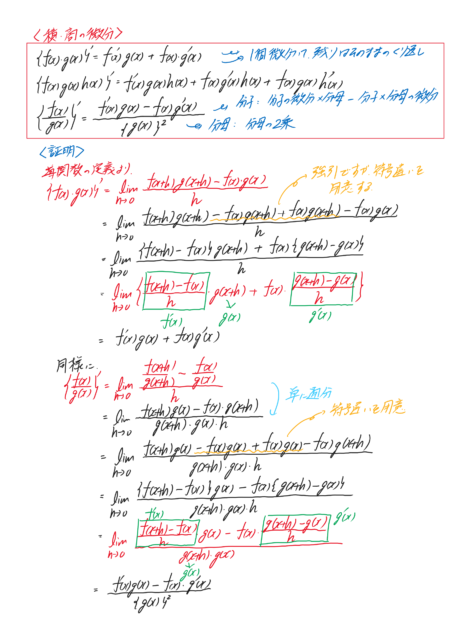 <積・商の微分>
{f(x)g(x)}' = f'(x)g(x) + f(x)g'(x) 1個微分して、残りはそのままのくり返し
{f(x)g(x)h(x)}' = f'(x)g(x)h(x) + f(x)g'(x)h(x) + f(x)g(x)h'(x)
{f(x)/g(x)}' = (f'(x)g(x) − f(x)g'(x))/{g(x)}² 分子: 分子の微分×分母 − 分子×分母の微分
分母: 分母の2乗
<証明>
導関数の定義より、
{f(x)g(x)}' = lim h→0 (f(x+h)g(x+h) − f(x)g(x))/h 強引ですが符号違いを用意する
= lim h→0 (f(x+h)g(x+h) − f(x)g(x+h) + f(x)g(x+h) − f(x)g(x))/h
= lim h→0 ({f(x+h) − f(x)}g(x+h) + f(x){g(x+h) − g(x)})/h
= lim h→0 { (f(x+h) − f(x))/h · g(x+h) + f(x) · (g(x+h) − g(x))/h }
f'(x) g(x) g'(x)
= f'(x)g(x) + f(x)g'(x)
同様に、
{f(x)/g(x)}' = lim h→0 (f(x+h)/g(x+h) − f(x)/g(x))/h
= lim h→0 (f(x+h)g(x) − f(x)·g(x+h))/(g(x+h)·g(x)·h) 単に通分
符号違いを用意
= lim h→0 (f(x+h)g(x) − f(x)g(x) + f(x)g(x) − f(x)g(x+h))/(g(x+h)·g(x)·h)
= lim h→0 ({f(x+h) − f(x)}g(x) − f(x){g(x+h) − g(x)})/(g(x+h)·g(x)·h)
f'(x) g'(x)
= lim h→0 ((f(x+h) − f(x))/h g(x) − f(x) (g(x+h) − g(x))/h)/(g(x+h)·g(x))
g(x)
= (f'(x)g(x) − f(x)·g'(x))/{g(x)}²